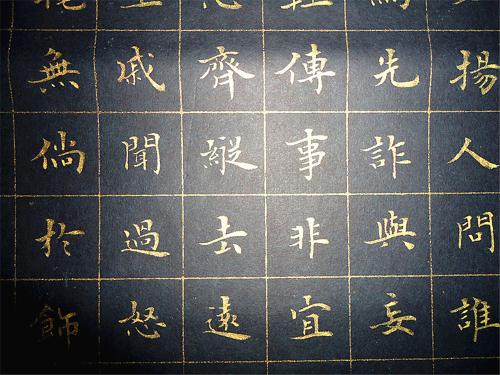 揚人問誰
先詐與妄
傳事非宜
齊縱去遠
戚聞過怒
無倘於飾